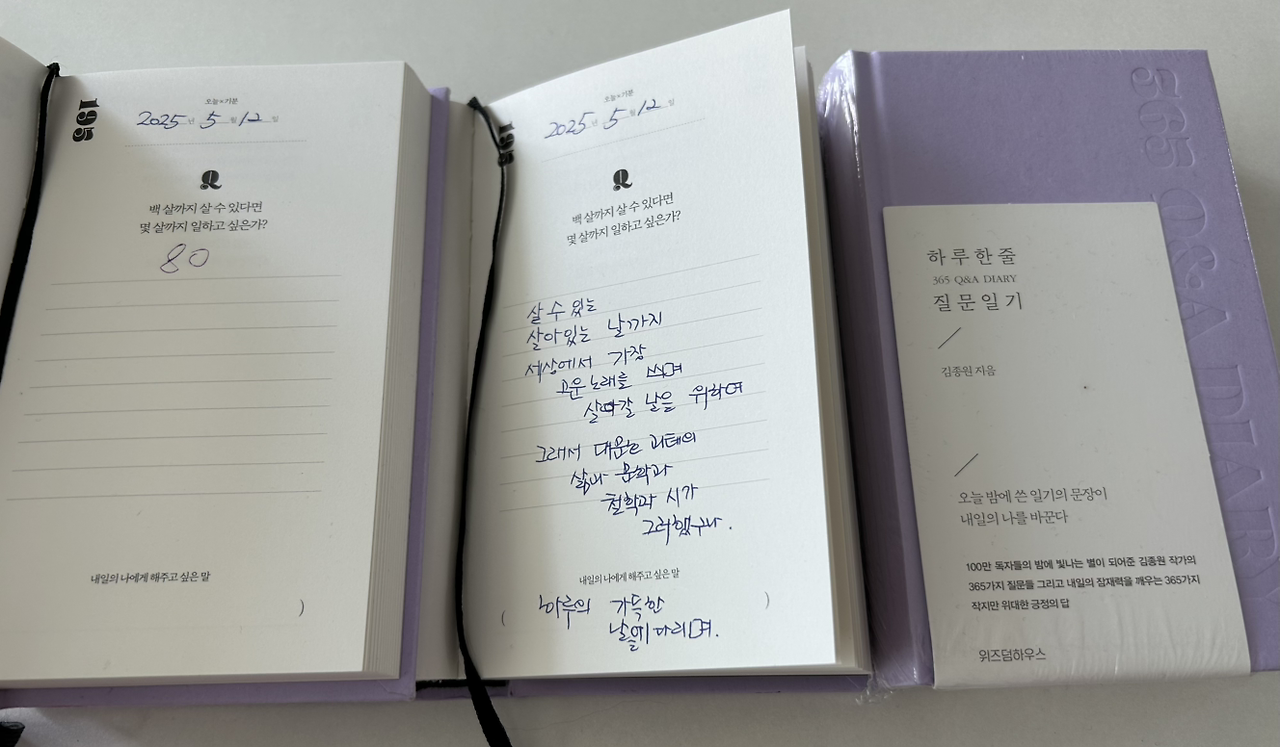 195
오늘의 기분
2025년 5월 12일
Q
백 살까지 살 수 있다면
몇 살까지 일하고 싶은가?
80
내일의 나에게 해주고 싶은 말
)
195
오늘의 기분
2025년 5월 12일
Q
백 살까지 살 수 있다면
몇 살까지 일하고 싶은가?
살 수 있는
살아있는 날까지
세상에서 가장
고운 노래를 쓰며
살아갈 날을 위하여
그래서 대문호 괴테의
삶나 문학과
철학과 시가
그러했구나.
내일의 나에게 해주고 싶은 말
( 하루의 가득한 )
날을 기다리며.
365 Q&A DIARY
하루 한 줄
365 Q&A DIARY
질문 일기
김종원 지음
오늘 밤에 쓴 일기의 문장이
내일의 나를 바꾼다
100만 독자들의 밤에 빛나는 별이 되어준 김종원 작가의
365가지 질문들 그리고 내일의 잠재력을 깨우는 365가지
작지만 위대한 긍정의 답
위즈덤하우스